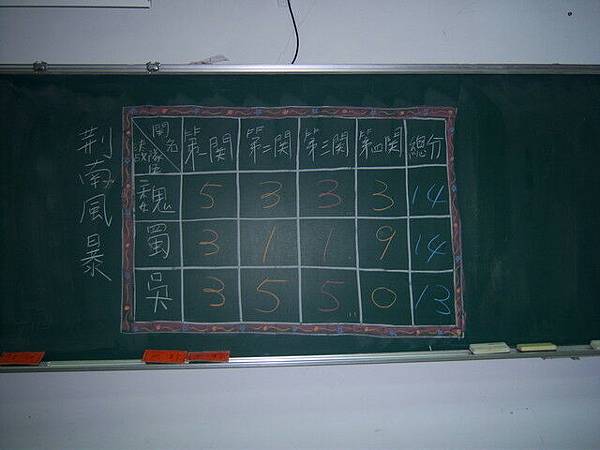 荆南風暴
關名 隊伍 第一関 第二関 第三関 第四関 總分
魏 5 3 3 3 14
蜀 3 1 1 9 14
吳 3 5 5 0 13